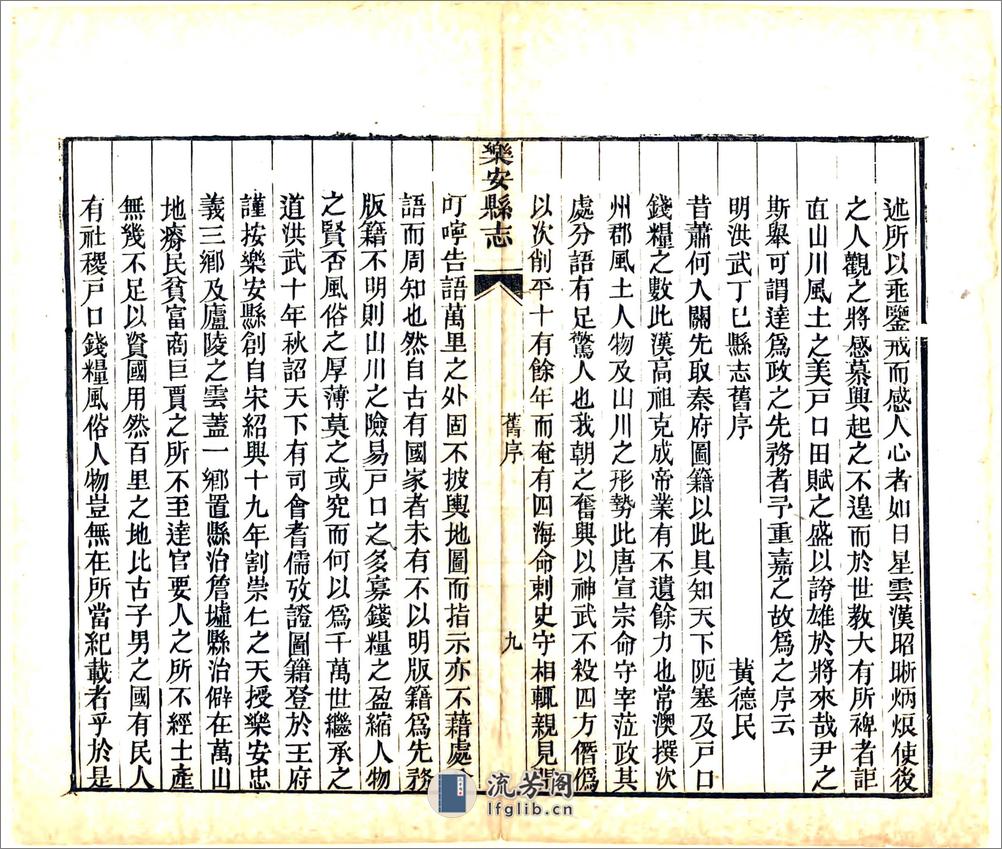 述所以垂鑒戒而感人心者如日星雲漢昭晰炳烺使後
之人觀之將感慕興起之不遑而於世教大有所裨者詎
直山川風土之美戸口田賦之盛以誇雄於將來哉尹之
斯舉可謂達爲政之先務者予重嘉之故爲之序云
明洪武丁巳縣志舊序
黃德民
昔蕭何入關先取秦府圖籍以此具知天下阨塞及戸口
錢糧之數此漢高祖克成帝業有不遺餘力也常澳撰次
州郡風土人物及山川之形勢此唐宣宗命守宰蒞政其
處分語有足驚人也我朝之奮興以神武不殺四方僭僞
以次削平十有餘年而奄有四海命刺史守相輒親見
樂安縣志
舊序
九
叮嚀告語萬里之外固不披輿地圖而指示亦不藉處分
語而周知也然自古有國家者未有不以明版籍爲先務
版籍不明則山川之險易戸口之多寡錢糧之盈縮人物
之賢否風俗之厚薄莫之或究而何以爲千萬世繼承之
道洪武十年秋詔天下有司會耆儒攷證圖籍登於王府
謹按樂安縣創自宋紹興十九年割崇仁之天授樂安忠
義三鄉及廬陵之雲蓋一鄉置縣治詹墟縣治僻在萬山
地瘠民貧富商巨賈之所不至達官要人之所不經士產
無幾不足以資國用然百里之地比古子男之國有民人
有社稷戸口錢糧風俗人物豈無在所當紀載者乎於是
流芳阁
lfglib.cn